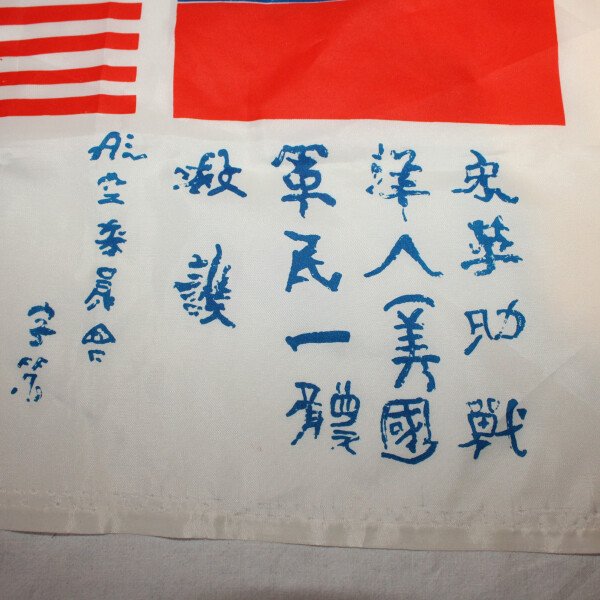 來華助戰
洋人（美國
軍民一體
救護
航空委員會
字第